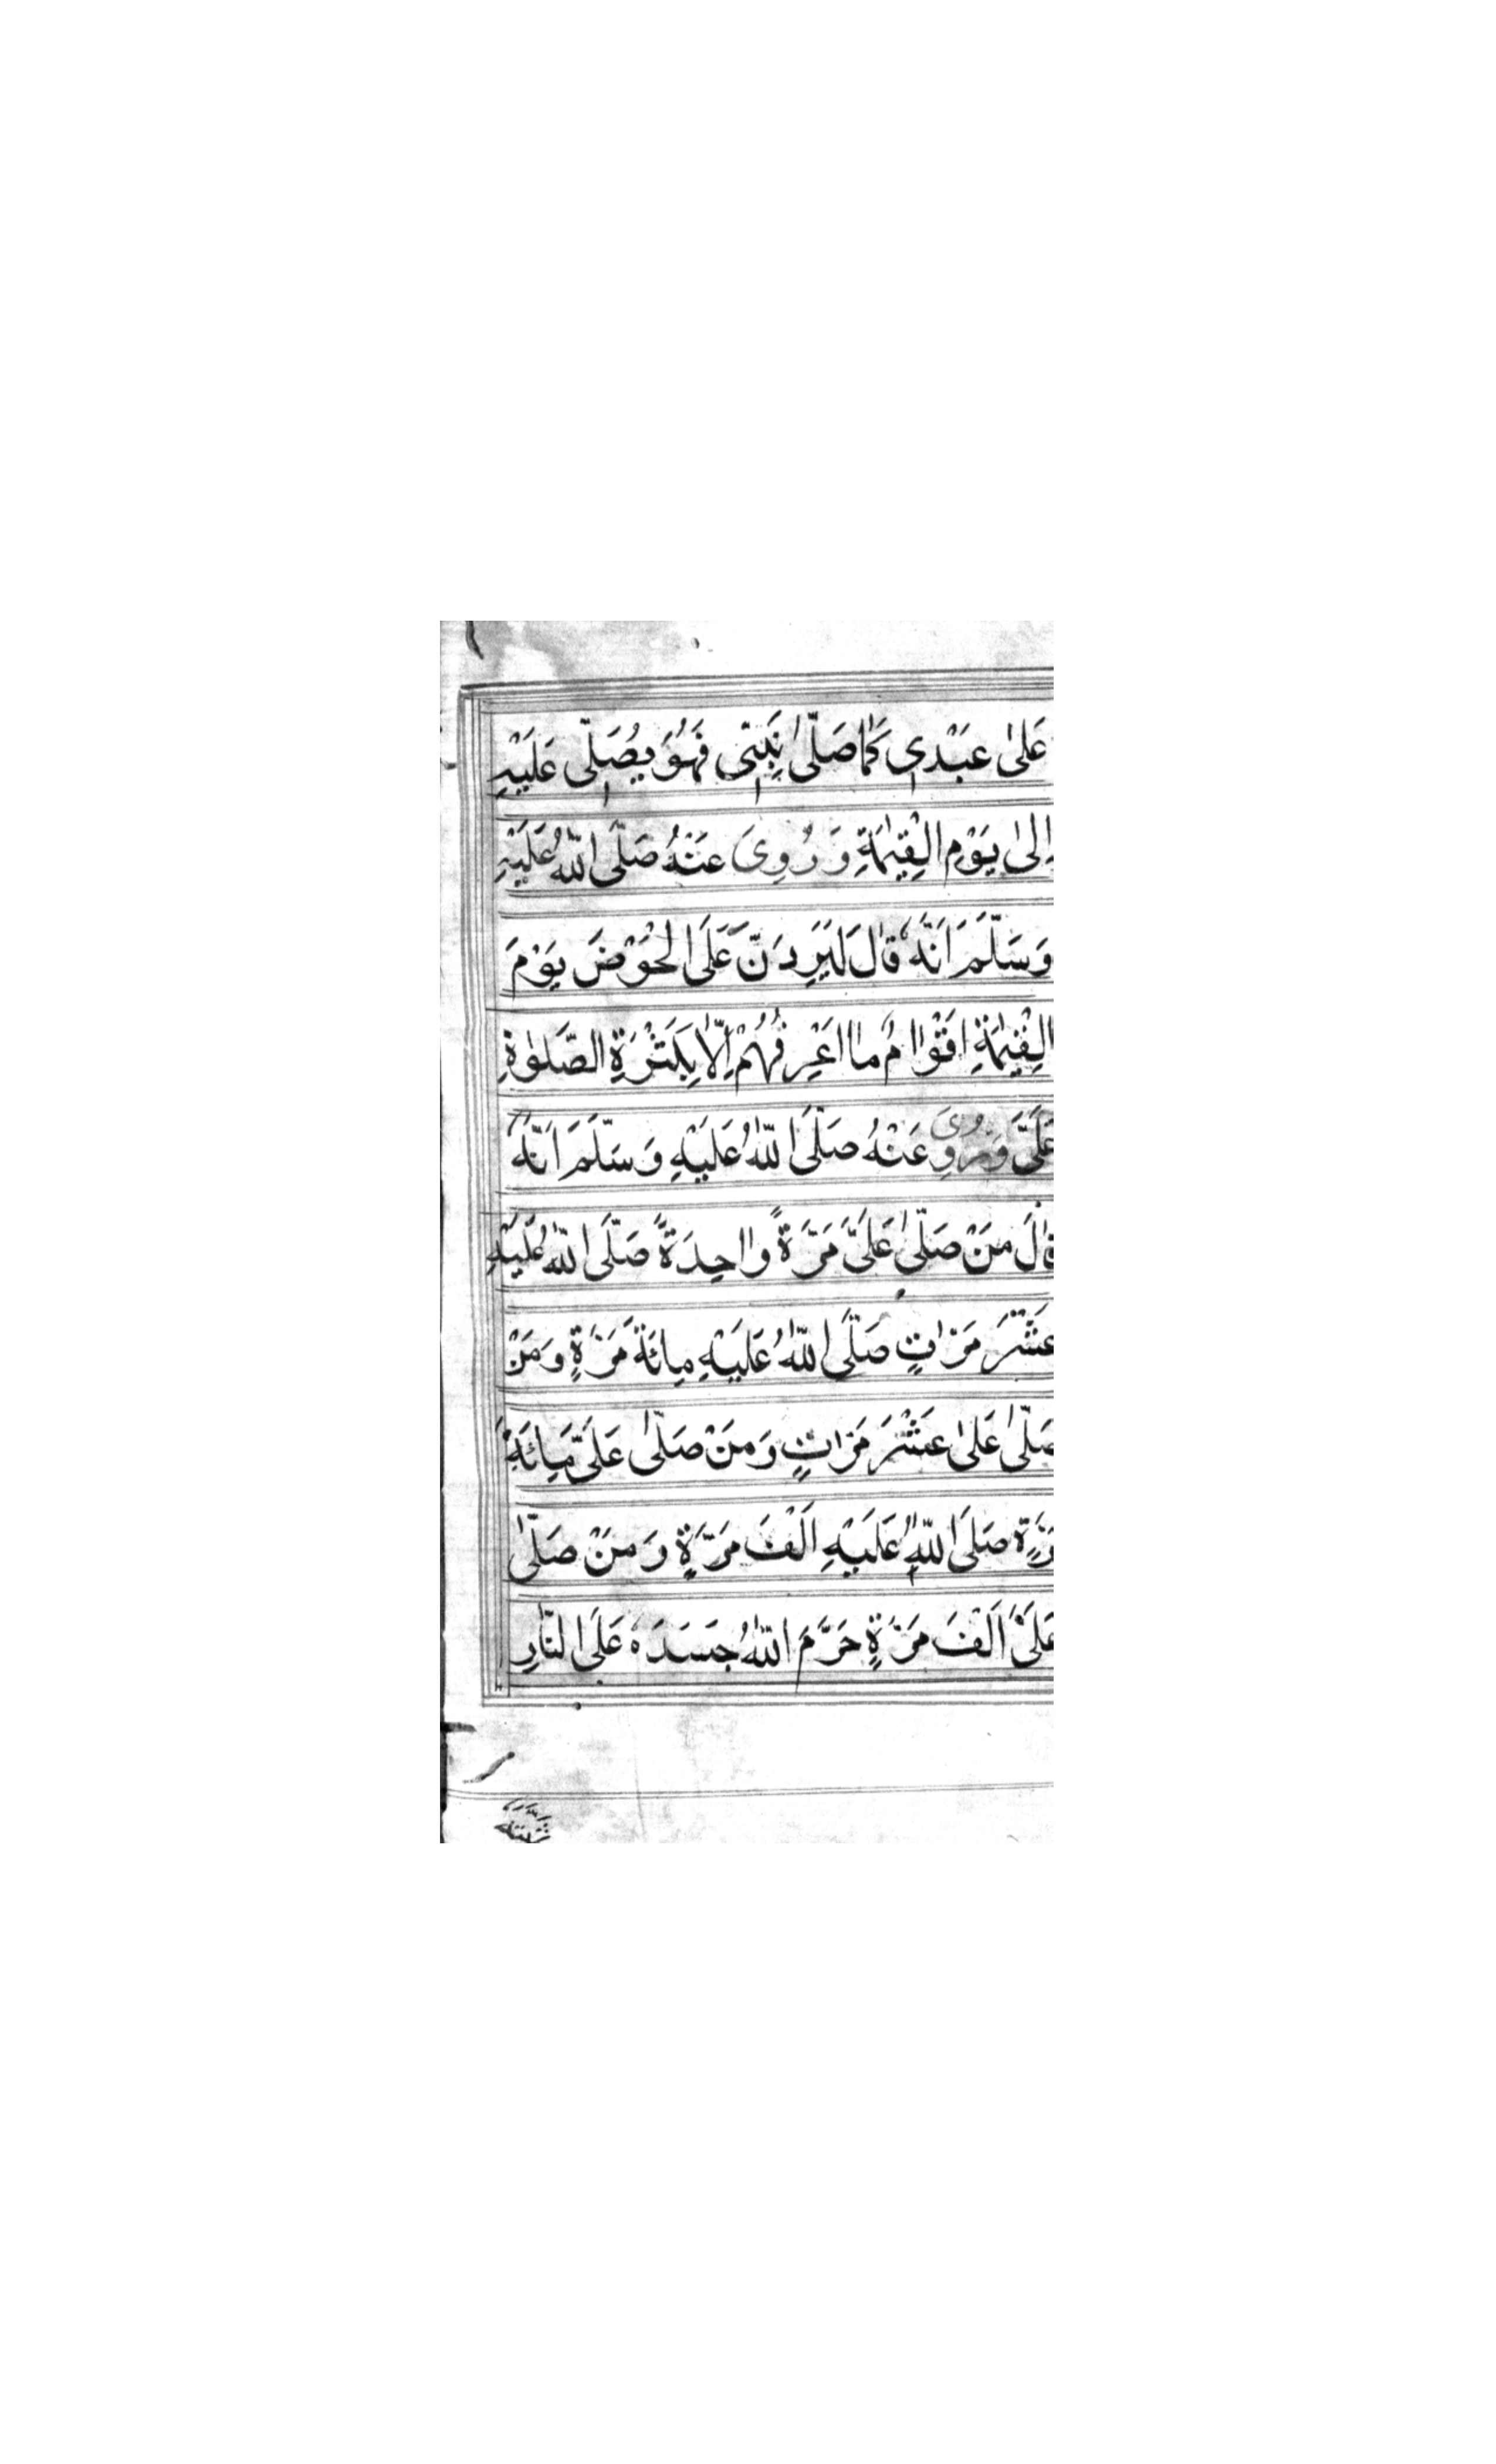 عَلىٰ عَبْدِي كَمَا صَلّىٰ نَبِيِّ فَهُوَ يُصَلِّي عَلَيْهِ
اِلىٰ يَوْمِ الْقِيٰمَةِ وَرُوِيَ عَنْهُ صَلَّى اللّٰهُ عَلَيْهِ
وَسَلَّمَ اَنَّهُ قٰالَ لَيَرِدَنَّ عَلَى الْحَوْضَ يَوْمَ
الْقِيٰمَةِ اَقْوٰامٌ مٰا اَعْرِفُهُمْ اِلّاٰ بِكَثْرَةِ الصَّلٰوةِ
عَلَيَّ وَرُوِيَ عَنْهُ صَلَّى اللّٰهُ عَلَيْهِ وَسَلَّمَ اَنَّهُ
قٰالَ مَنْ صَلّىٰ عَلَيَّ مَرَّةً وٰاحِدَةً صَلَّى اللّٰهُ عَلَيْهِ
عَشْرَ مَرّٰاتٍ صَلَّى اللّٰهُ عَلَيْهِ مِائَةَ مَرَّةٍ وَمَنْ
صَلّىٰ عَلىٰ عَشْرَ مَرّٰاتٍ وَمَنْ صَلّىٰ عَلَيَّ مِائَةَ
مَرَّةٍ صَلَى اللّٰهُ عَلَيْهِ اَلْفَ مَرَّةٍ وَمَنْ صَلّىٰ
عَلَيَّ اَلْفَ مَرَّةٍ حَرَّمَ اللّٰهُ جَسَدَهُ عَلَى النّٰارِ